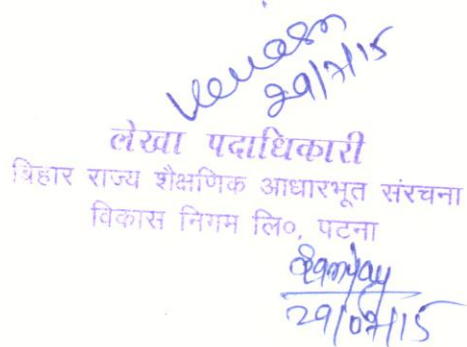 29/7/15
लेखा पदाधिकारी
बिहार राज्य शैक्षणिक आधारभूत संरचना
विकास निगम लि०, पटना
29/07/15